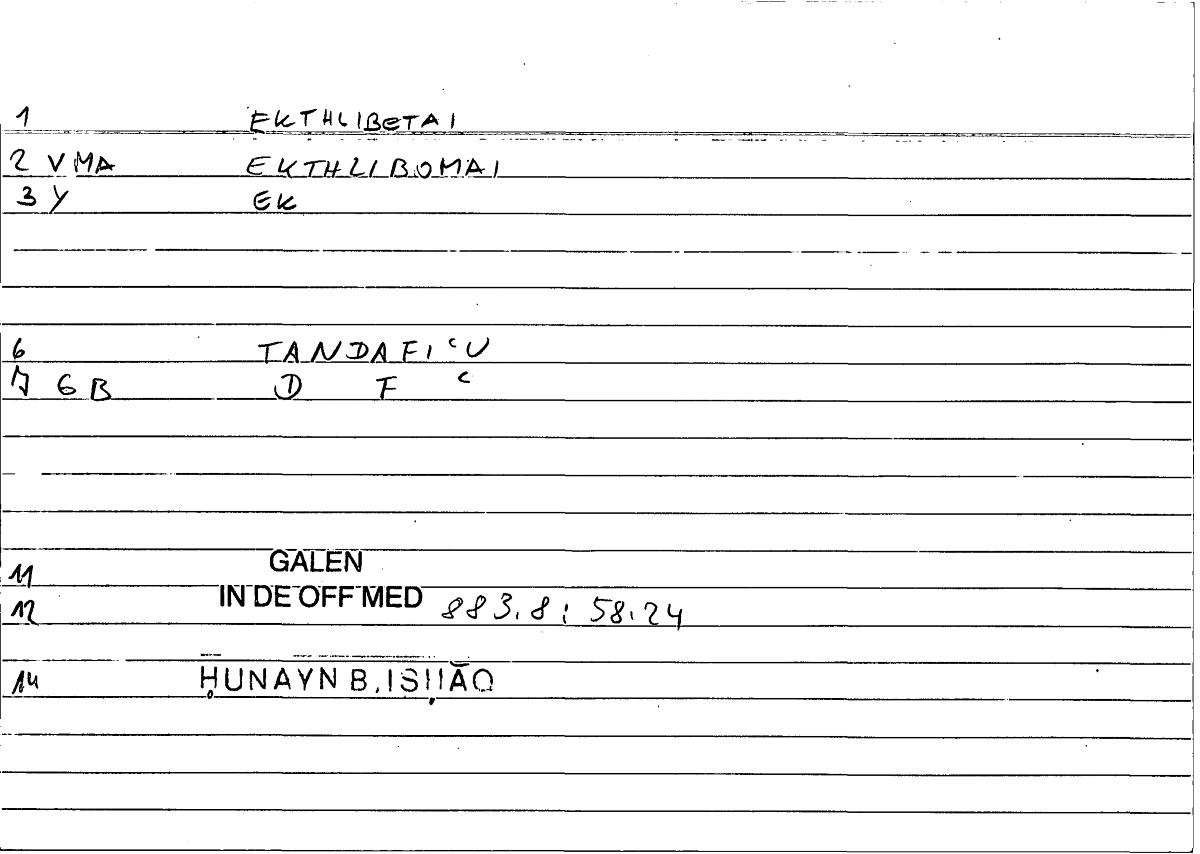 1 EKTHLIBETAI
2 VMA EKTHLIBOMAI
3 Y EK
6 TANDAFIʿU
7 6 B D F ʿ
11 GALEN
12 IN DE OFF MED 883.8 : 58.24
14 ḤUNAYN B. ISḤĀQ